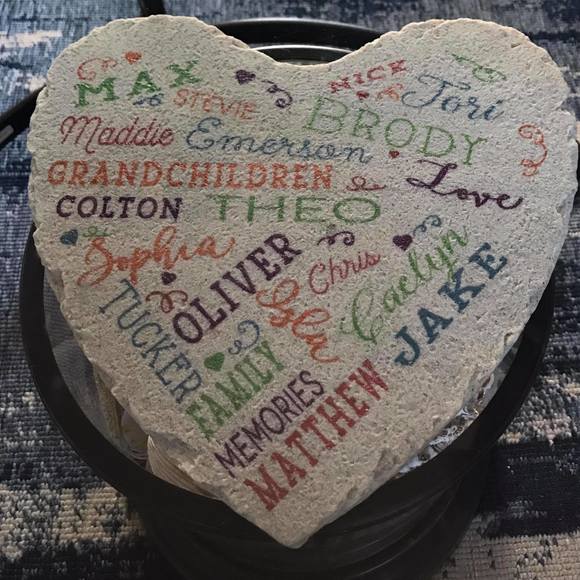 MAX
STEVIE
NICK
Tori
Maddie
Emerson
BRODY
GRANDCHILDREN
Love
COLTON
THEO
Sophia
OLIVER
Chris
Caelyn
TUCKER
Isla
JAKE
FAMILY
MEMORIES
MATTHEW